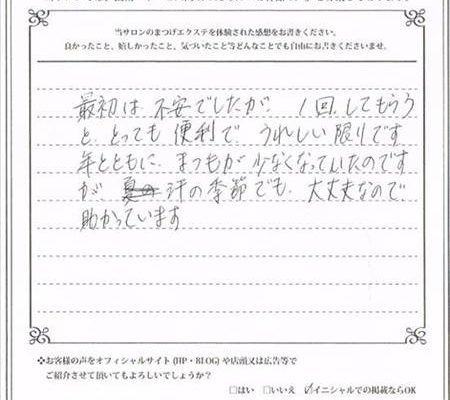 当サロンのまつげエクステを体験された感想をお書きください。
良かったこと、嬉しかったこと、気づいたこと等どんなことでも自由にお書きくださいませ。
最初は 不安でしたが、1回 してもらう
と、とっても 便利で うれしい 限りです
年とともに、まつもが 少なくなっていたのです
が、汗の季節でも、大丈夫なので、
助かっています
❖お客様の声をオフィシャルサイト(HP・BLOG)や店頭又は広告等で
ご紹介させて頂いてもよろしいでしょうか?
□はい □いいえ ☑イニシャルでの掲載ならOK